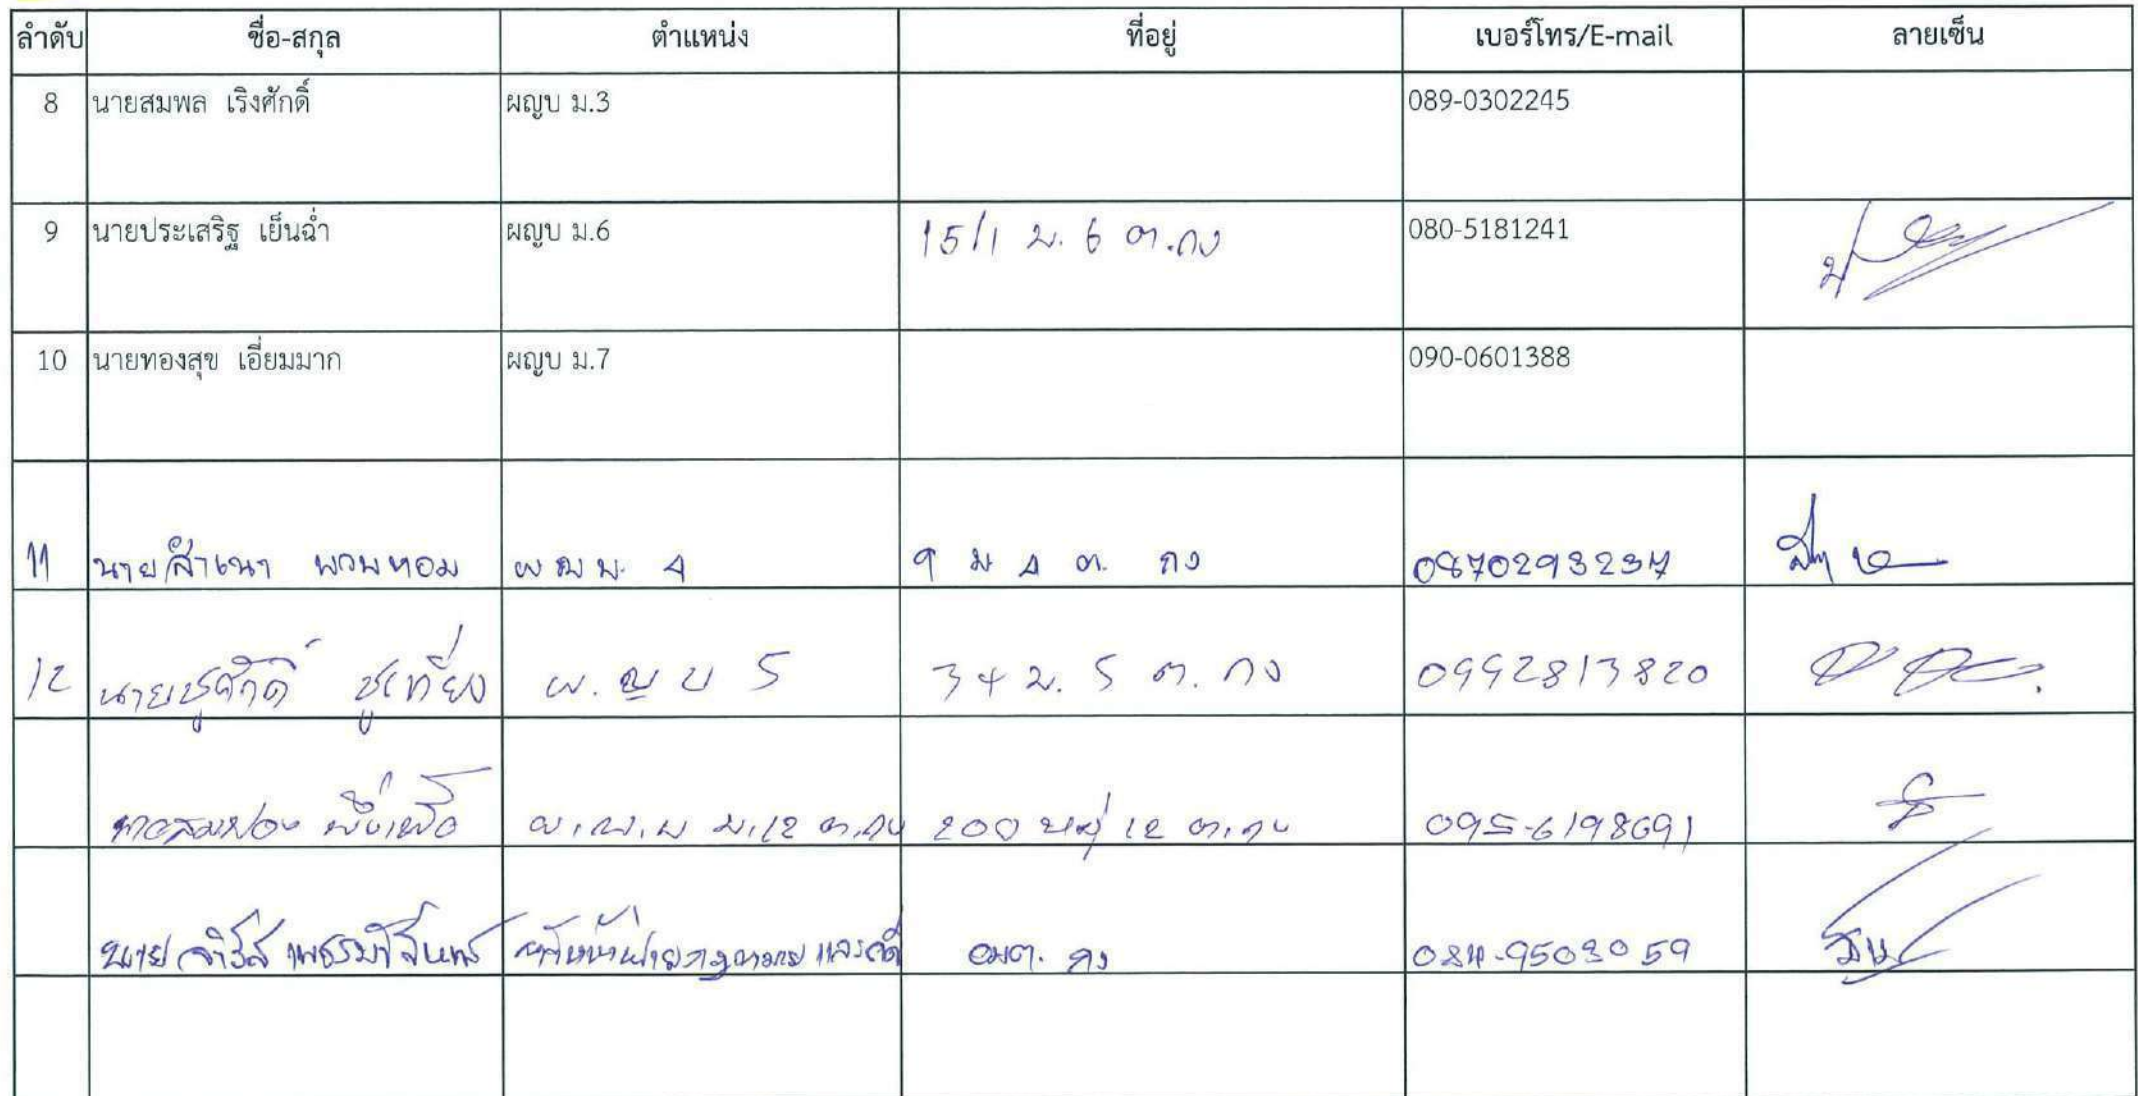 ลำดับ ชื่อ-สกุล ตำแหน่ง ที่อยู่ เบอร์โทร/E-mail ลายเซ็น
8 นายสมพล เริงศักดิ์ ผญบ ม.3 089-0302245
9 นายประเสริฐ เย็นฉ่ำ ผญบ ม.6 15/1 ม. 6 ต.กง 080-5181241
10 นายทองสุข เอี่ยมมาก ผญบ ม.7 090-0601388
11 นายสำเนา พวงหอม ผญบ. 4 9 ม 4 ต. กง 0870293237
12 นายชูศักดิ์ ชูเที่ยง ผ.ญ บ 5 34 ม. 5 ต. กง 0992813820
ผ.ญ.บ ม.12 ต.กง 200 หมู่ 12 ต.กง 095-6198691
นาย หัวหน้าฝ่ายกฎหมายและคดี อบต. กง 084-9503059